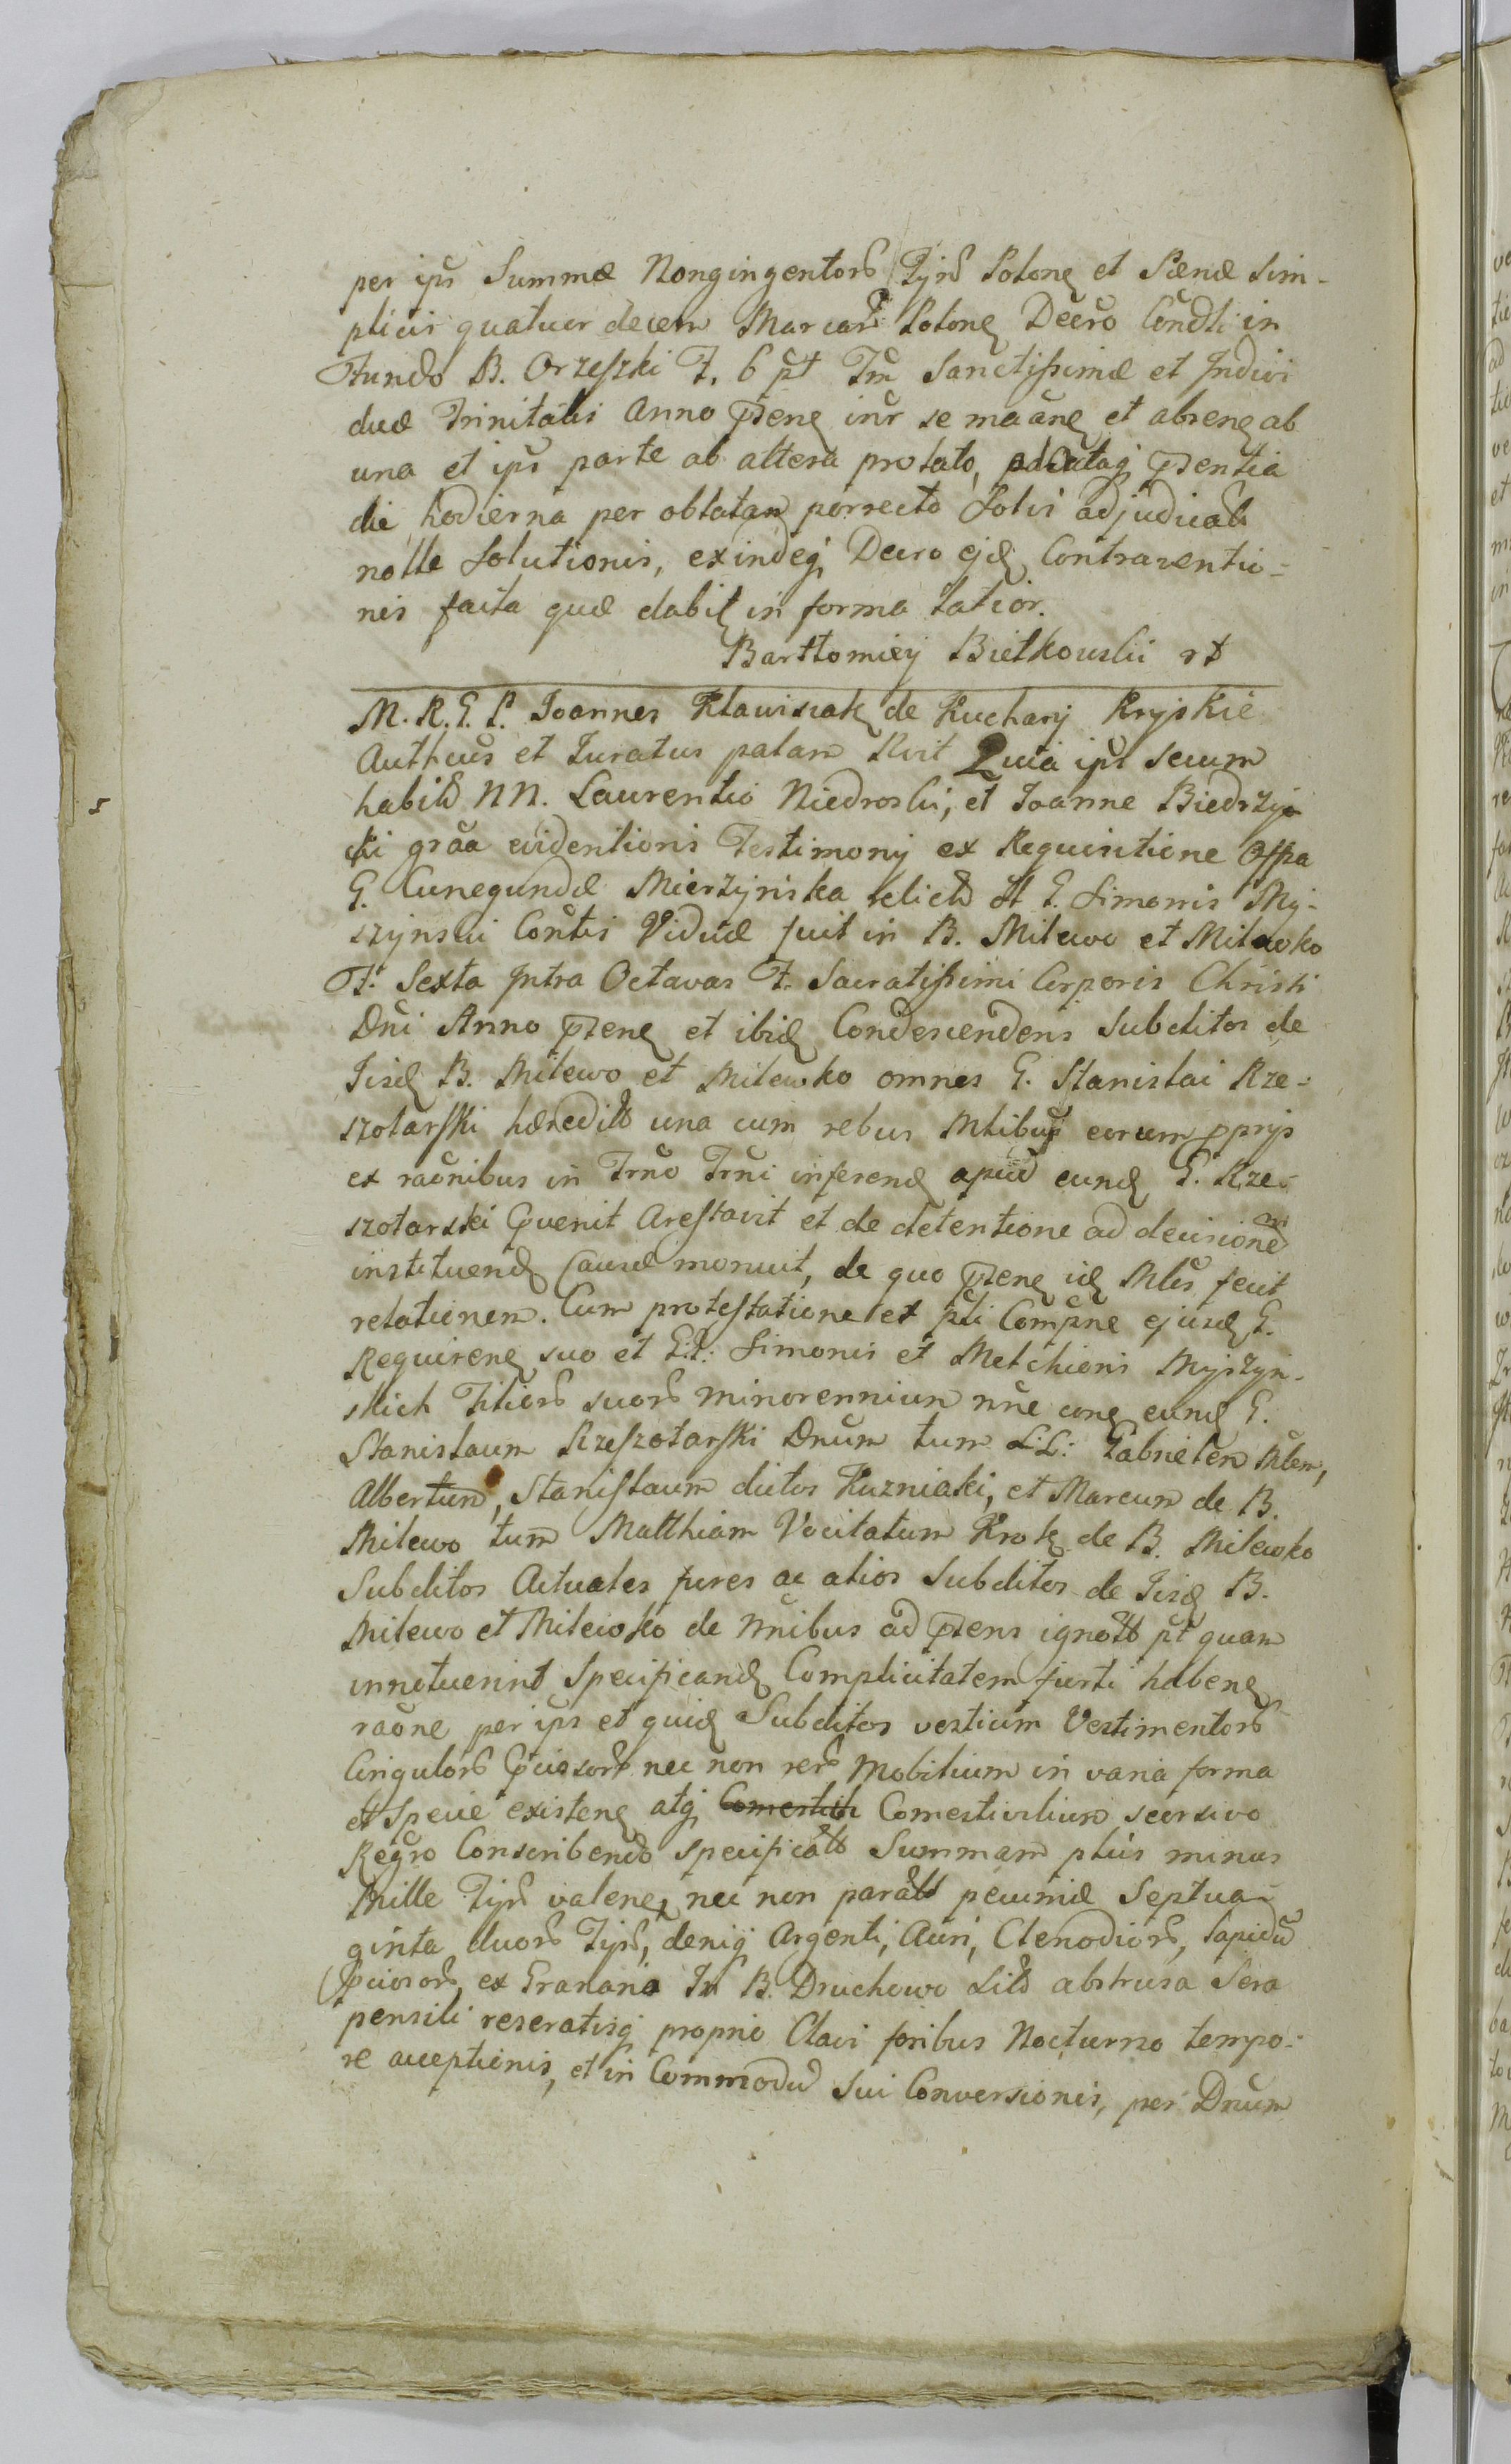 per ips Summæ Nongingentorū Tyś Polonę et Pænæ sim-
plicis quatuor decem Marcarū Polonę Decro Condti in
Fundo B. Orzeszki F. 6 pt Fm Sanctissimæ et Indivi
duæ Trinitatis Anno pñenę inr se maanę et absenę ab
una et ips parte ab altera prolato, pñentia
die hodierna per oblatam porrecto Solvi adjudicatę
nolle solutionis, exindeq Decro ejd Contraventio-
nis facta quæ dabit in forma latior.
Bartłomiey Bietkowski
M. R. G. P. Joannes Klawisiak de Kuchary Kryskie
Authcus et Juratus palam Rvit Quia ips secum
habitis NN. Laurentio Niedroski, et Joanne Biedrzyc
cki grãa evidentioris Testimony ex Requisitione Offa
G. Cunegundæ Mierzynska relictæ G. Simonis My-
szynski Contis Viduæ fuit in B. Milewo et Milewko
F. Sexta Intra Octavas F. Sacratissimi Corporis Christi
Dni Anno pñenę et ibidę Condescendens Subditos de
Iisdę B. Milewo et Milewko omnes G. Stanislai Rze-
szotarski hæreditis una cum rebus Mtibus eorum pprijs
ex raõnibus in Trno Trni inferendę apud eundę G. Rze-
szotarski pvenit Arestavit et de detentione ad decisionem
instituendę Causæ monuit, de quo pñenę idę Mlis fecit
relationem. Cum protestatione et pti Compne ejusdę G.
Requirenę suo et G.G: Simonis et Melchioris Myszyn-
skich Filiorū suorū minorennium nñe conę eundę G.
Stanislaum Rzeszotarski Dnum tum L:L: Gabrielem Mlem,
Albertum, Stanislaum dictos Kuzniaki, et Marcum de B.
Milewo tum Matthiam Vocitatum Krok de B. Milewko
Subditos Actuales fures ac alios Subditos de Iisdę B.
Milewo et Milewko de Nnibus ad pñens ignotos pt quam
innotuerint Specificandę Complicitatem furti habenę
raõne per ips et quidę Subditos vestium Vestimentorū
Cingulorū pciosorū nec non rerū Mobilium in varia forma
et Specie existenę atq Comestib Comestivilium seorsivo
Regro Conscribendo specificatis Summam plus minus
Mille Tyś valenę, nec non paratæ pecuniæ Septua-
ginta duorū Tyś, deniq Argenti, Auri, Clenodiorū, lapidū
pciosorū, ex Granario In B. Druchowo Sitō abstrusa Sera
pensili reseratisq proprio Clavi foribus Nocturno tempo-
re acceptionis, et in Commodū sui Conversionis, per Dnum